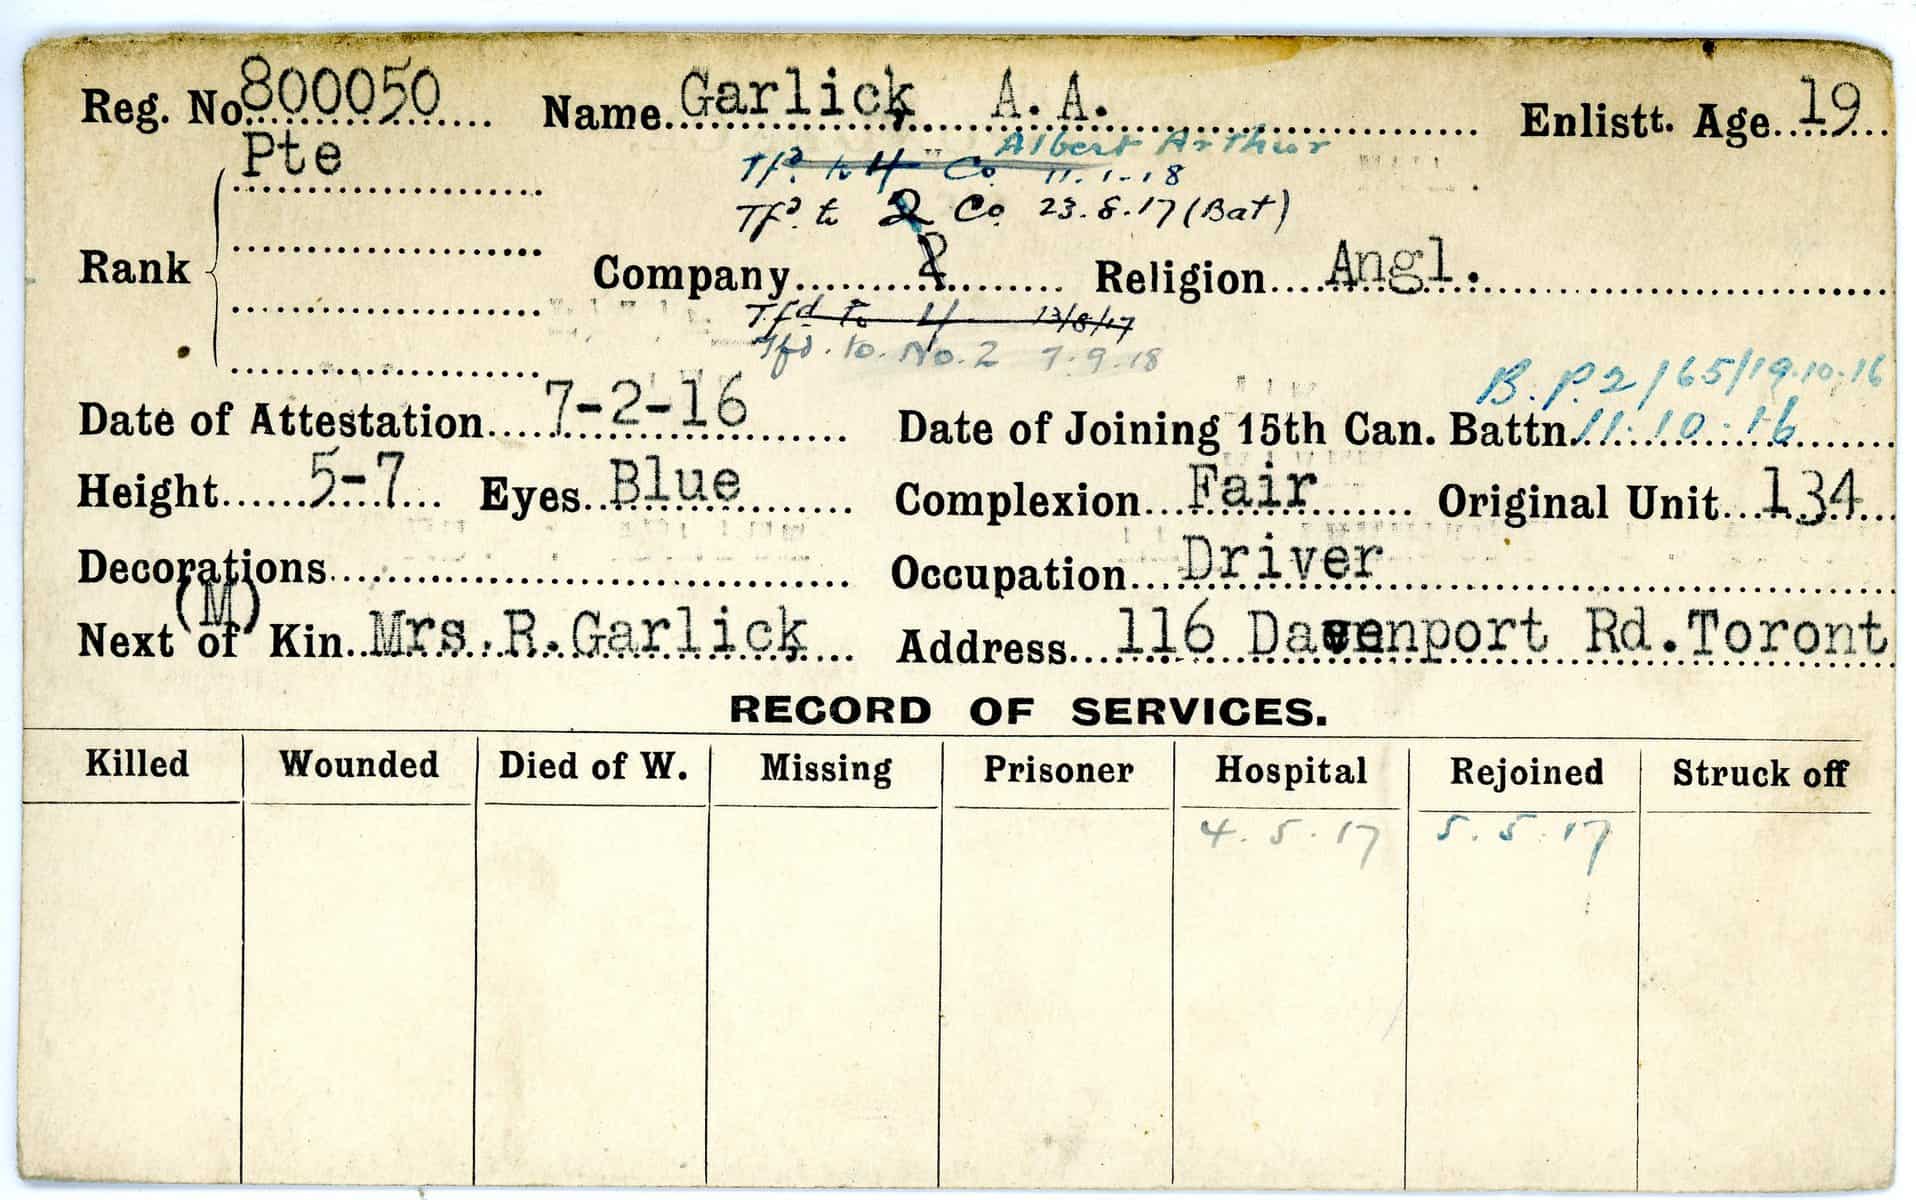 Reg. No. 800050 Name Garlick, A. A. Enlistt. Age 19
Pte Albert Arthur
Tfd. to 4 Co 11.1.18
Tfd. to 2 Co. 23.8.17 (Bat)
Rank Company 2 Religion Angl.
Tfd to 4 13/8/17
Tfd. to. No. 2 7.9.18
B.P.2/65/19.10.16
Date of Attestation 7-2-16 Date of Joining 15th Can. Battn. 11.10.16
Height 5-7 Eyes Blue Complexion Fair Original Unit 134
Decorations Occupation Driver
(M)
Next of Kin Mrs. R. Garlick, Address 116 Davenport Rd. Toront
RECORD OF SERVICES.
Killed Wounded Died of W. Missing Prisoner Hospital Rejoined Struck off
4.5.17 5.5.17